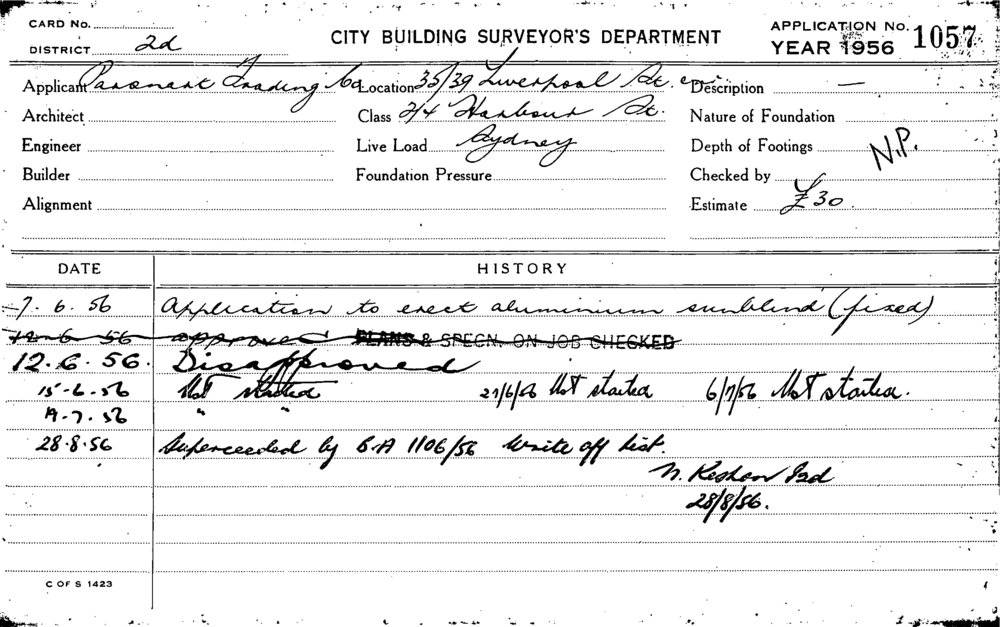 CARD No.
DISTRICT 2d
CITY BUILDING SURVEYOR'S DEPARTMENT
APPLICATION No. 1057
YEAR 1956
Applicant Trading Co Location 35/39 Liverpool St. cnr Description —
Architect Class 2/4 Harbour St. Nature of Foundation
Engineer Live Load Sydney Depth of Footings N.P.
Builder Foundation Pressure Checked by
Alignment Estimate £30
DATE HISTORY
7. 6. 56 Application to erect aluminium sunblind (fixed)
12-6-56 approved PLANS & SPECN. ON JOB CHECKED
12.6.56. Disapproved
15-6-56 Not started 27/6/56 Not started 6/7/56 Not started.
19.7.56 " "
28.8.56 Superceeded by B.A 1106/56 Write off list.
28/8/56.
C OF S 1423